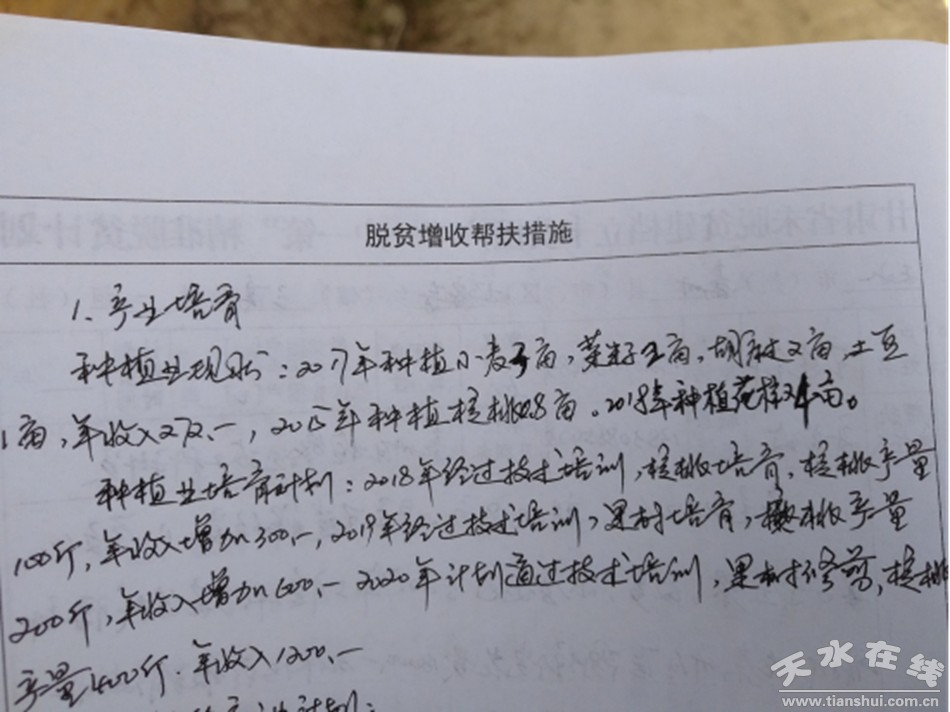 脱贫增收帮扶措施
1、产业培育
种植业现状：2017年种植小麦亩，菜籽亩，胡麻2亩，土豆
1亩，年收入272.一，2015年种植核桃0.8亩。2018年种植花椒亩。
种植业培育计划：2018年经过技术培训，核桃培育，核桃产量
100斤，年收入增加300.一，2019年经过技术培训，果树培育，核桃产量
200斤，年收入增加600.一2020年计划通过技术培训，果树修剪，核桃
产量400斤．年收入1200.一
计划：
天水在线
www.tianshui.com.cn